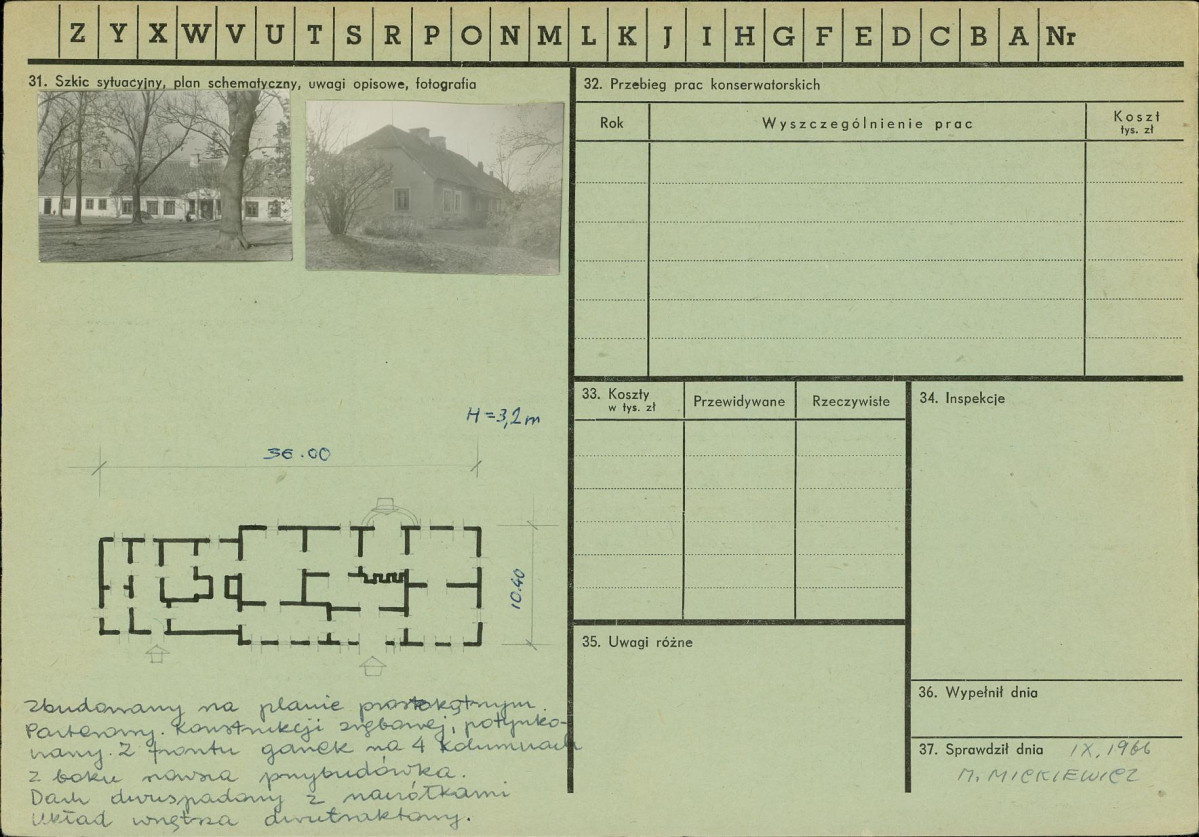 Z Y X W V U T S R P O N M L K J I H G F E D C B A Nr
31. Szkic sytuacyjny, plan schematyczny, uwagi opisowe, fotografia
H = 3,2 m
36.00
10.40
zbudowany na planie prostokątnym.
Parterowy. Konstrukcji zrębowej, potynko-
wany. Z frontu ganek na 4 kolumnach
z boku nowsza przybudówka.
Dach dwuspadowy z naczółkami
Układ wnętrza dwutraktowy.
32. Przebieg prac konserwatorskich
Rok Wyszczególnienie prac Koszt
tys. zł
33. Koszty
w tys. zł
Przewidywane Rzeczywiste
34. Inspekcje
35. Uwagi różne
36. Wypełnił dnia
37. Sprawdził dnia IX, 1966
M. MICKIEWICZ